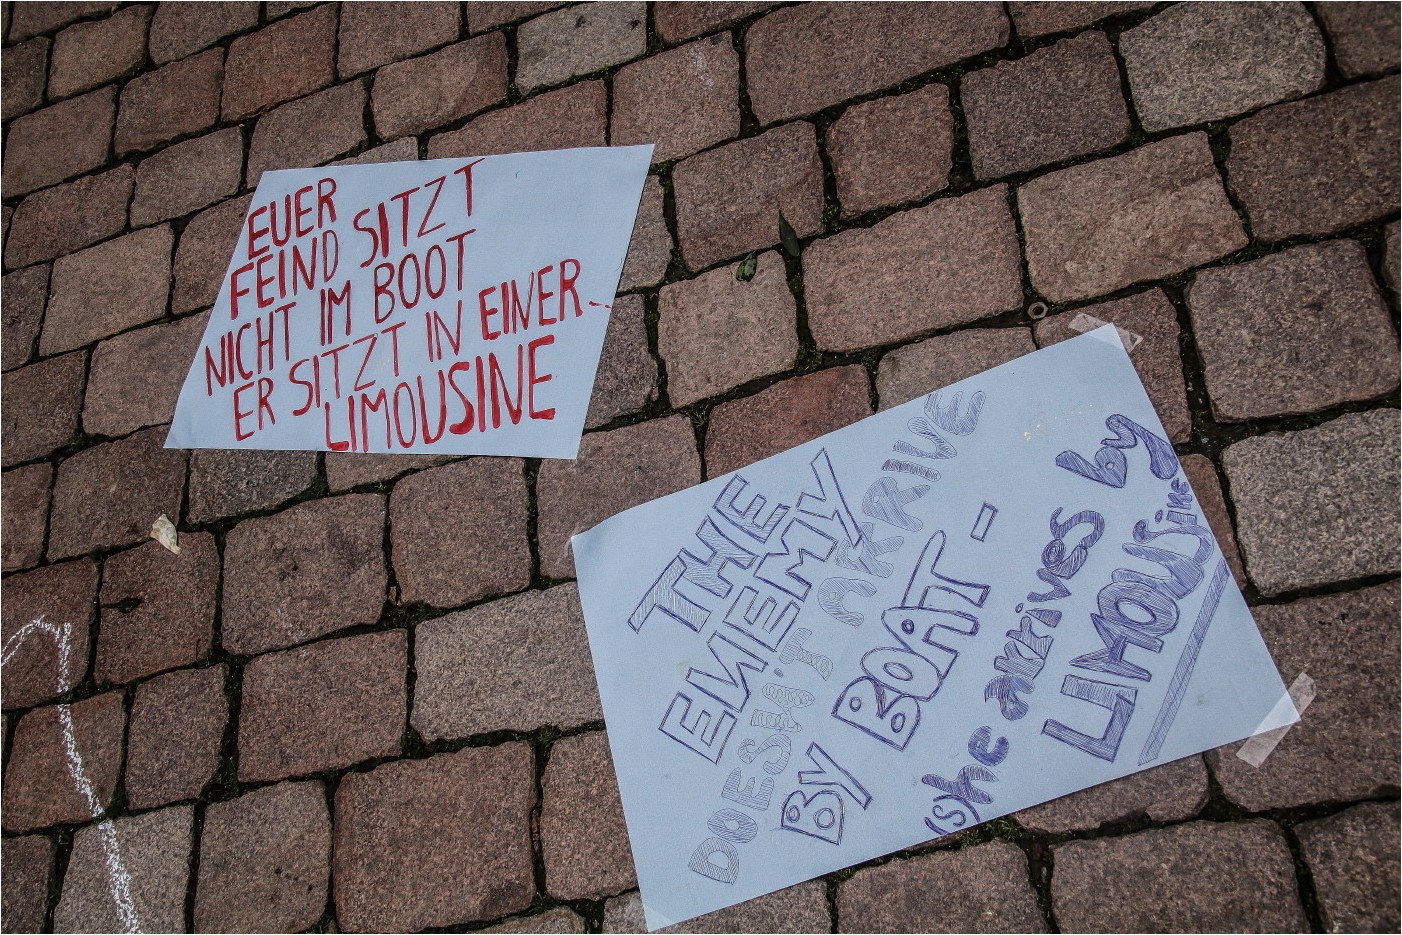 EUER
FEIND SITZT
NICHT IM BOOT
ER SITZT IN EINER...
LIMOUSINE
THE
ENEMY
DOESN'T ARRIVE
BY BOAT -
(s)he arrives by
LIMOUSine